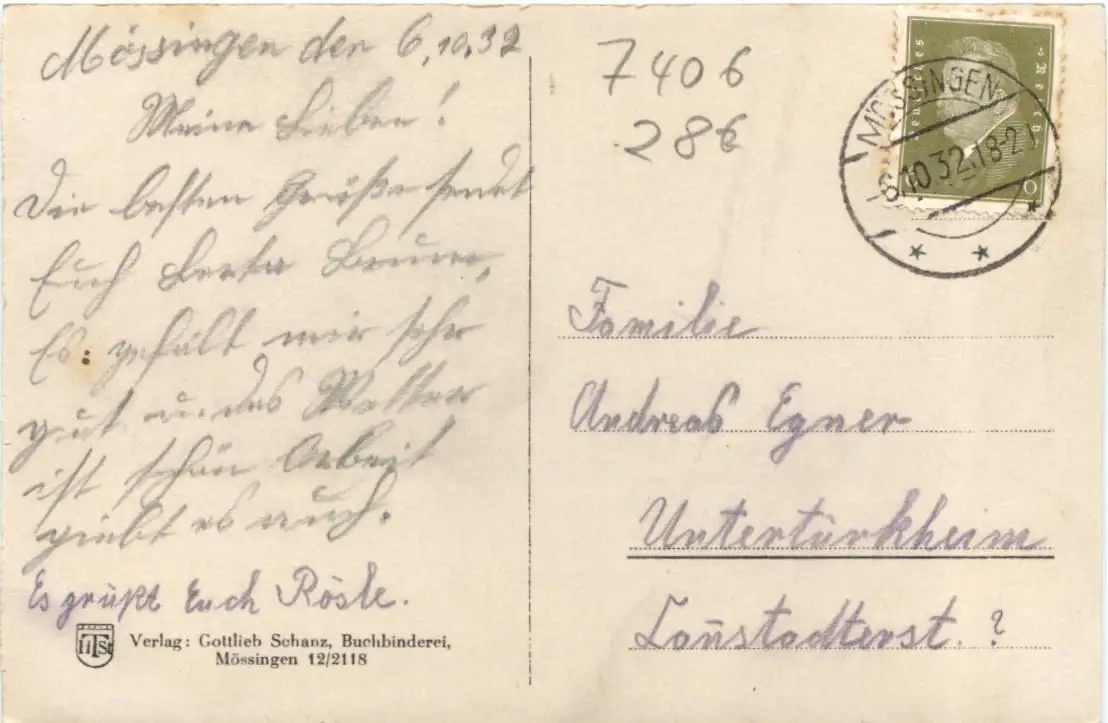 Mössingen den 6.10.32
Meine Lieben!
Die besten Grüße sendet
Euch Berta Braun,
Es gefält mir sehr
gut u. das Wetter
ist schön Arbeit
giebt es auch.
Es grüßt Euch Rösle.
Verlag: Gottlieb Schanz, Buchbinderei,
Mössingen 12/2118
7406
286
Deutsches Reich
MÖSSINGEN
6.10.32.18-2
Familie
Andreas Egner
Untertürkheim
Canstadterst. ?